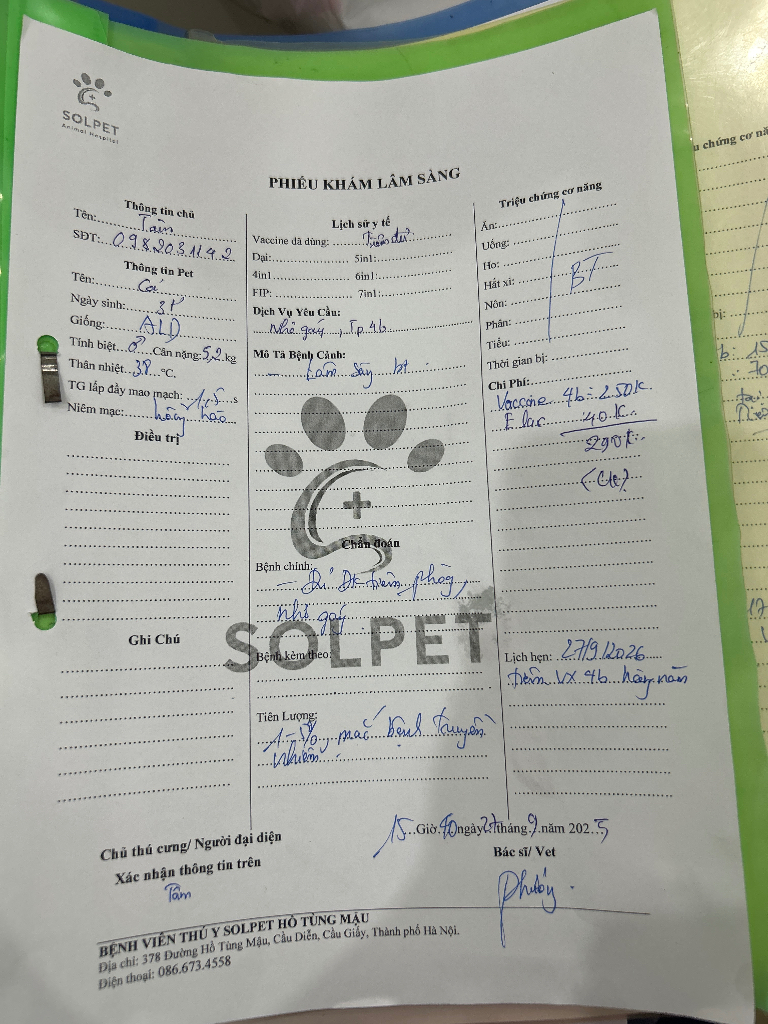 SOLPET
Animal Hospital
PHIẾU KHÁM LÂM SÀNG
Thông tin chủ
Tên: Tâm
SĐT: 0982031142
Thông tin Pet
Tên: Cá
Ngày sinh: 3T
Giống: ALD
Tính biệt ♂ Cân nặng: 5,2 kg
Thân nhiệt 38 °C.
TG lấp đầy mao mạch: 1,5 s
Niêm mạc: hồng hào
Điều trị
Ghi Chú
Lịch sử y tế
Vaccine đã dùng: tiêm đủ
Dại: 5in1:
4in1 6in1:
FIP: 7in1:
Dịch Vụ Yêu Cầu:
nhỏ gáy, Tp 4b
Mô Tả Bệnh Cảnh:
- Lâm sàng bt
Chẩn đoán
Bệnh chính:
- Đủ Đk tiêm phòng,
nhỏ gáy
SOLPET
Bệnh kèm theo:
Tiên Lượng:
1-5% mắc bệnh truyền
nhiễm.
Triệu chứng cơ năng
Ăn:
Uống:
Ho:
Hắt xì: BT
Nôn:
Phân:
Tiểu:
Thời gian bị:
Chi Phí:
Vaccine 4b: 250K
E lac 40K
290K
(CK)
Lịch hẹn: 27/9/2026
tiêm VX 4b hàng năm
15 Giờ 40 ngày 27 tháng 9 năm 2025
Chủ thú cưng/ Người đại diện
Xác nhận thông tin trên
Tâm
Bác sĩ/ Vet
BỆNH VIỆN THÚ Y SOLPET HỒ TÙNG MẬU
Địa chỉ: 378 Đường Hồ Tùng Mậu, Cầu Diễn, Cầu Giấy, Thành phố Hà Nội.
Điện thoại: 086.673.4558
chứng cơ nă